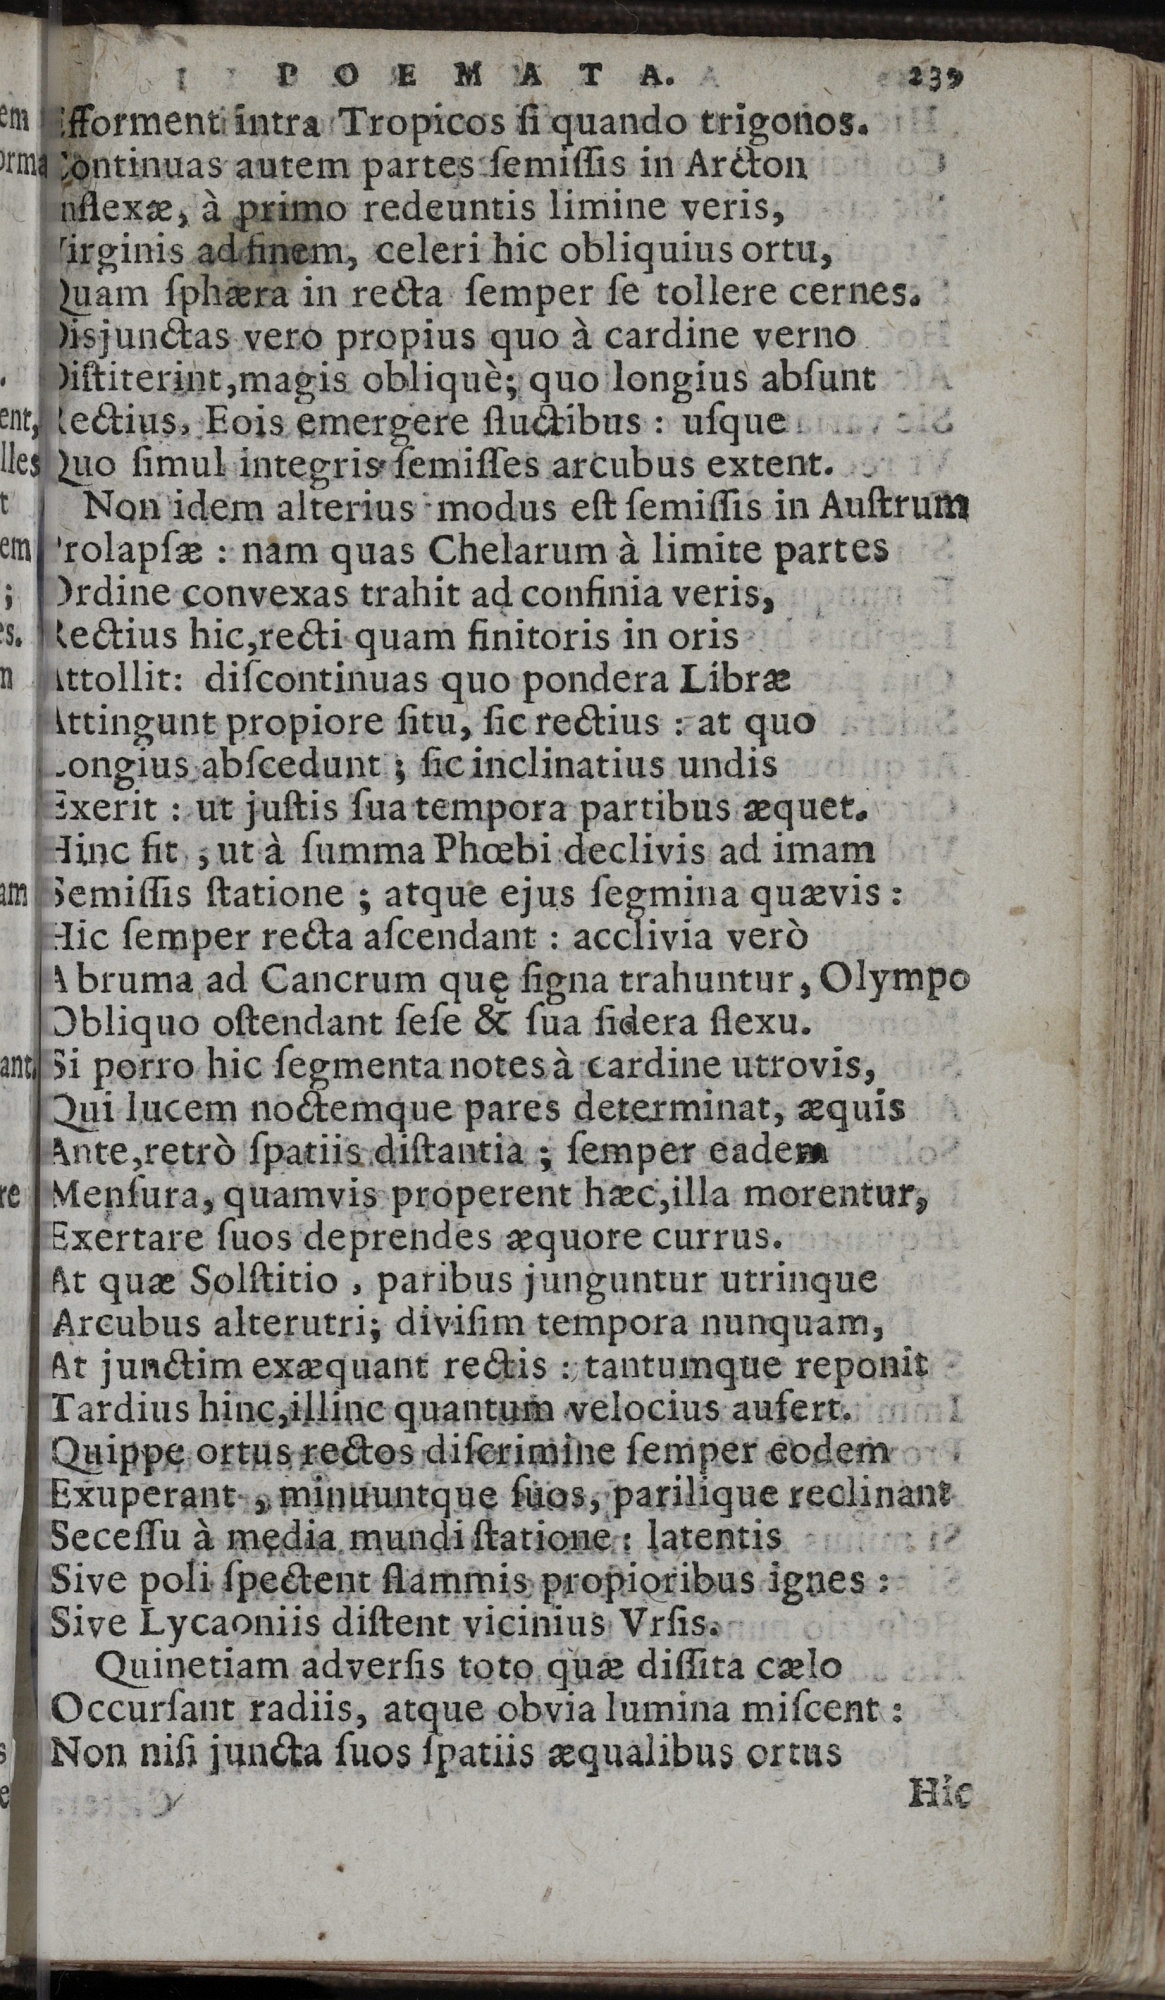 POEMATA. 239
Efforment intra Tropicos ſi quando trigonos.
Continuas autem partes ſemiſſis in Arcton
Inflexæ, à primo redeuntis limine veris,
Virginis ad finem, celeri hic obliquius ortu,
Quam ſphæra in recta ſemper ſe tollere cernes.
Disjunctas vero propius quo à cardine verno
Diſtiterint, magis obliquè; quo longius abſunt
Rectius, Eois emergere fluctibus : uſque
Quo ſimul integris ſemiſſes arcubus extent.
Non idem alterius modus eſt ſemiſſis in Auſtrum
Prolapſæ : nam quas Chelarum à limite partes
Ordine convexas trahit ad confinia veris,
Rectius hic, recti quam finitoris in oris
Attollit: diſcontinuas quo pondera Libræ
Attingunt propiore ſitu, ſic rectius : at quo
Longius abſcedunt ; ſic inclinatius undis
Exerit : ut juſtis ſua tempora partibus æquet.
Hinc fit ; ut à ſumma Phœbi declivis ad imam
Semiſſis ſtatione ; atque ejus ſegmina quævis :
Hic ſemper recta aſcendant : acclivia verò
A bruma ad Cancrum quę ſigna trahuntur, Olympo
Obliquo oſtendant ſeſe & ſua ſidera flexu.
Si porro hic ſegmenta notes à cardine utrovis,
Qui lucem noctemque pares determinat, æquis
Ante, retrò ſpatiis diſtantia ; ſemper eadem
Menſura, quamvis properent hæc, illa morentur,
Exertare ſuos deprendes æquore currus.
At quæ Solſtitio , paribus junguntur utrinque
Arcubus alterutri; diviſim tempora nunquam,
At junctim exæquant rectis : tantumque reponit
Tardius hinc, illinc quantum velocius aufert.
Quippe ortus rectos diſcrimine ſemper eodem
Exuperant , minuuntque ſuos, parilique reclinant
Seceſſu à media mundi ſtatione : latentis
Sive poli ſpectent flammis propioribus ignes :
Sive Lycaoniis diſtent vicinius Vrſis.
Quinetiam adverſis toto quæ diſſita cælo
Occurſant radiis, atque obvia lumina miſcent :
Non niſi juncta ſuos ſpatiis æqualibus ortus
Hic